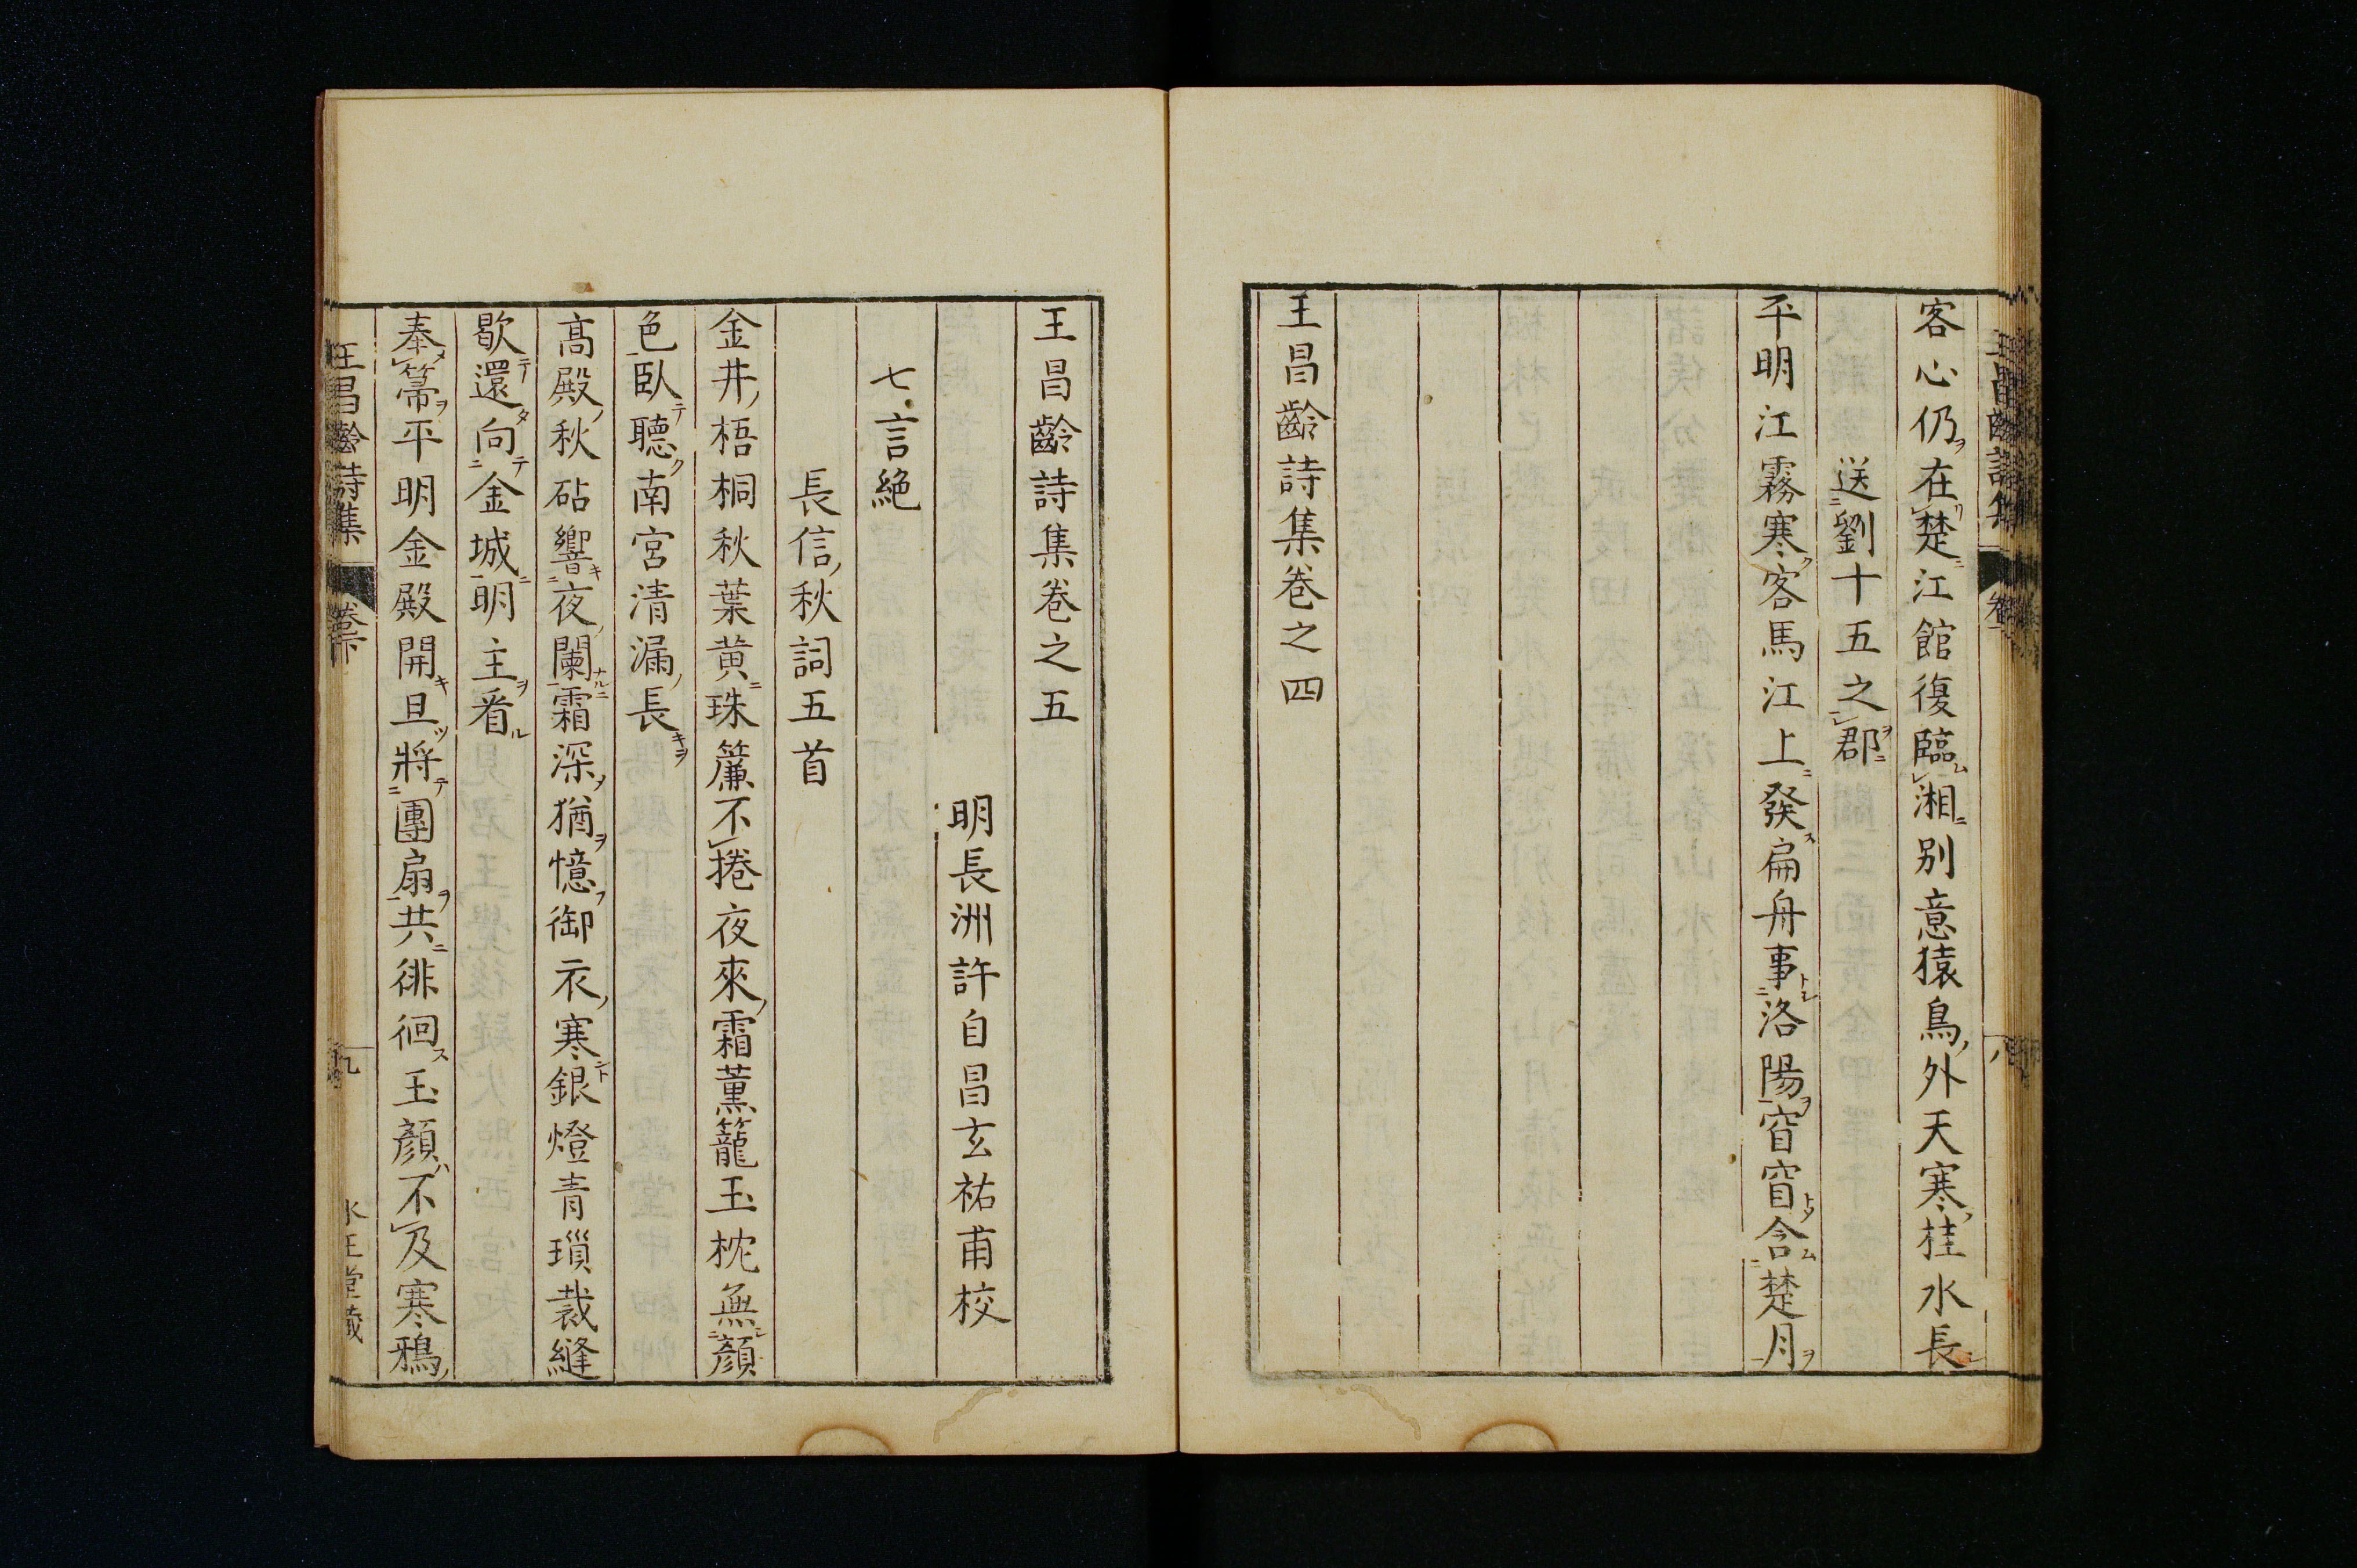 客心仍在楚江館復臨湘別意猿鳥外天寒桂水長
送劉十五之郡
平明江霧寒客馬江上發扁舟事洛陽窅窅含楚月
王昌齡詩集卷之四
王昌齡詩集卷之五
明長洲許自昌玄祐甫校
七言絶
長信秋詞五首
金井梧桐秋葉黄珠簾不捲夜來霜薫籠玉枕無顔
色臥聽南宮清漏長
髙殿秋砧響夜闌霜深猶憶御衣寒銀燈青瑣裁縫
歇還向金城明主看
奉箒平明金殿開旦將團扇共徘徊玉顔不及寒鴉
王昌齡詩集
九